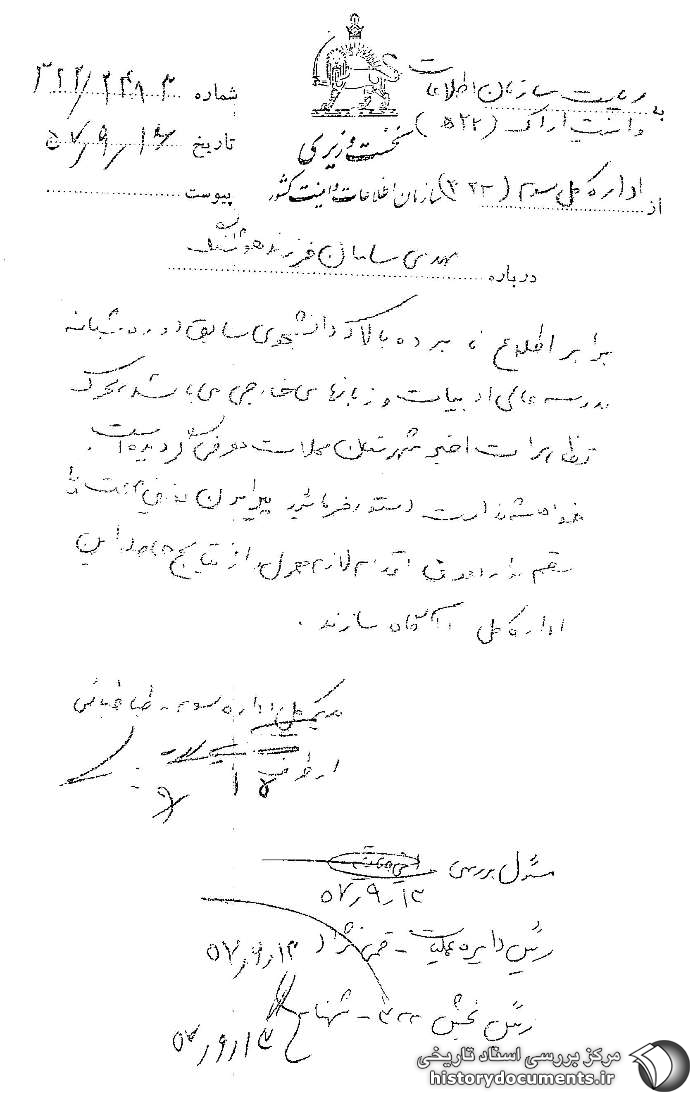 به ریاست سازمان اطلاعات
و امنیت اراک (۵۲۲)
نخست وزیری
سازمان اطلاعات و امنیت کشور
از اداره کل سوم (۳۲۲)
شماره ۳۲۲/۲۴۸۳
تاریخ ۵۷/۹/۱۴
پیوست
درباره مهدی سامان فرزند هوشنگ
برابر اطلاع نامبرده بالا که دانشجوی سابق دوره شبانه
مدرسه عالی ادبیات و زبانهای خارجی می باشد محرک
تظاهرات اخیر شهرستان محلات معرفی گردیده است.
خواهشمند است دستور فرمائید پیرامون
اقدام لازم معمول و از نتایج حاصله این
اداره کل را آگاه سازند.
مدیرکل اداره سوم - طباطبائی
از طرف
مسئول بررسی
۵۷/۹/۱۳
رئیس دایره عملیات - قمی نژاد ۵۷/۹/۱۳
رئیس بخش ۳۲۲ -
۵۷/۹/۱۳
مرکز بررسی اسناد تاریخی
historydocuments.ir